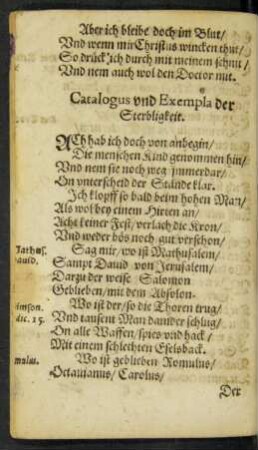 Aber ich bleibe doch im Blut/
Vnd wenn mir Christus wincken thut/
So drück ich durch mit meinem schnit/
Vnd nem auch wol den Doctor mit.
Catalogus vnd Exempla der
Sterbligkeit.
ACh hab ich doch von anbegin/
Die menschen Kind genommen hin/
Vnd nem sie noch weg jmmerdar/
On vnterscheid der Stände klar.
Ich klopff so bald beim hohen Man/
Als wol bey einem Hirten an/
Acht keiner Fest/ verlach die Kron/
Vnd weder bös noch gut verschon/
Sag mir/ wo ist Mathusalem/
Sampt Dauid von Jerusalem/
Darzu der weise Salomon
Geblieben/ mit dem Absolon.
Wo ist der/ so die Thoren trug/
Vnd tausent Man darnider schlug/
On alle Waffen/ spies vnd hack/
Mit einem schlechten Eselsback.
Wo ist geblieben Romulus/
Octauianus/ Carolus/
Der
auid.
imson.
dic. 15.
mulus.